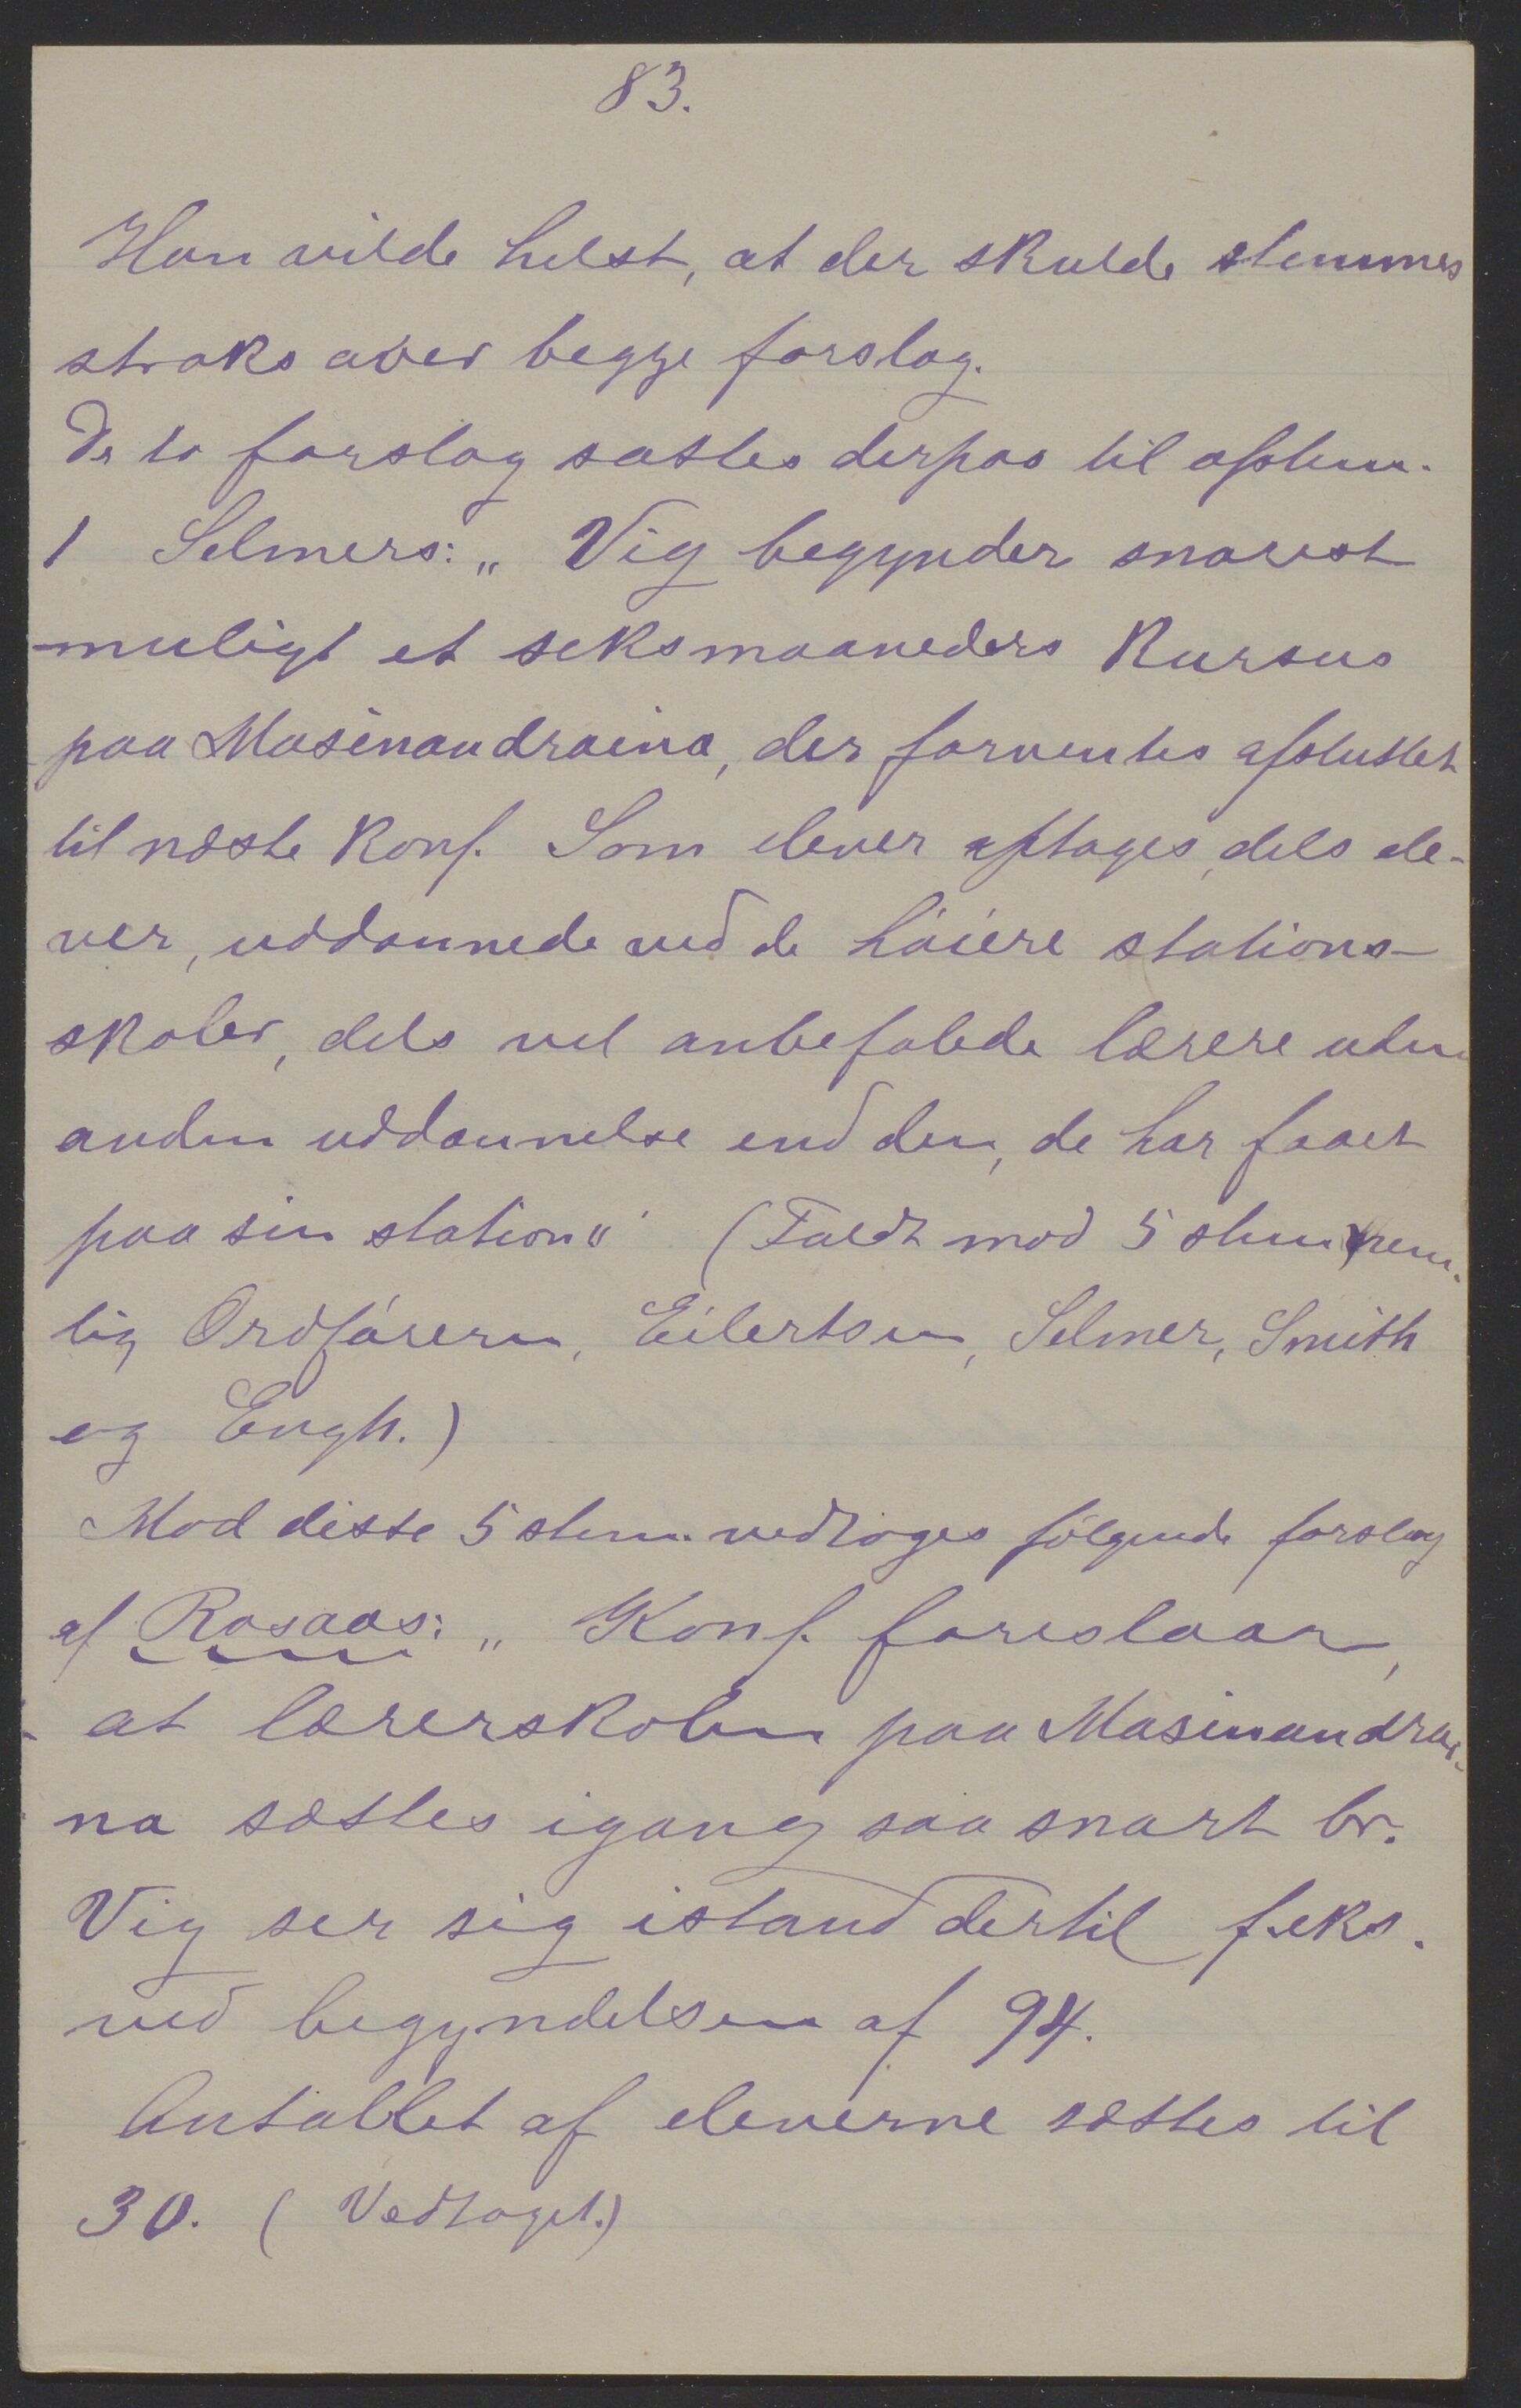 83.
Han vilde helst, at der skulde stemmes
straks over begge forslag.
De to forslag sattes derpaa til afstem.
1 Selmers: „ Vig begynder snarest
muligt et seksmaaneders Kursus
paa Masinandraina, der forventes afsluttet
til næste Konf. Som elever optages, dels ele-
ver, uddannede ved de høiere stations-
skoler, dels vel anbefalede lærere uden
anden uddannelse end den, de har faaet
paa sin station" (Faldt mod 5 stem nem-
lig Ordføreren, Eilertsen, Selmer, Smith
og Engh.)
Mod disse 5 stem. vedtoges følgende forslag
af Rosaas: „ Konf. foreslaar,
at lærerskolen paa Masinandrai-
na sættes igang saa snart br.
Vig ser sig istand dertil f.eks.
ved begyndelsen af 94.
Antallet af eleverne sættes til
30. ( Vedtaget.)